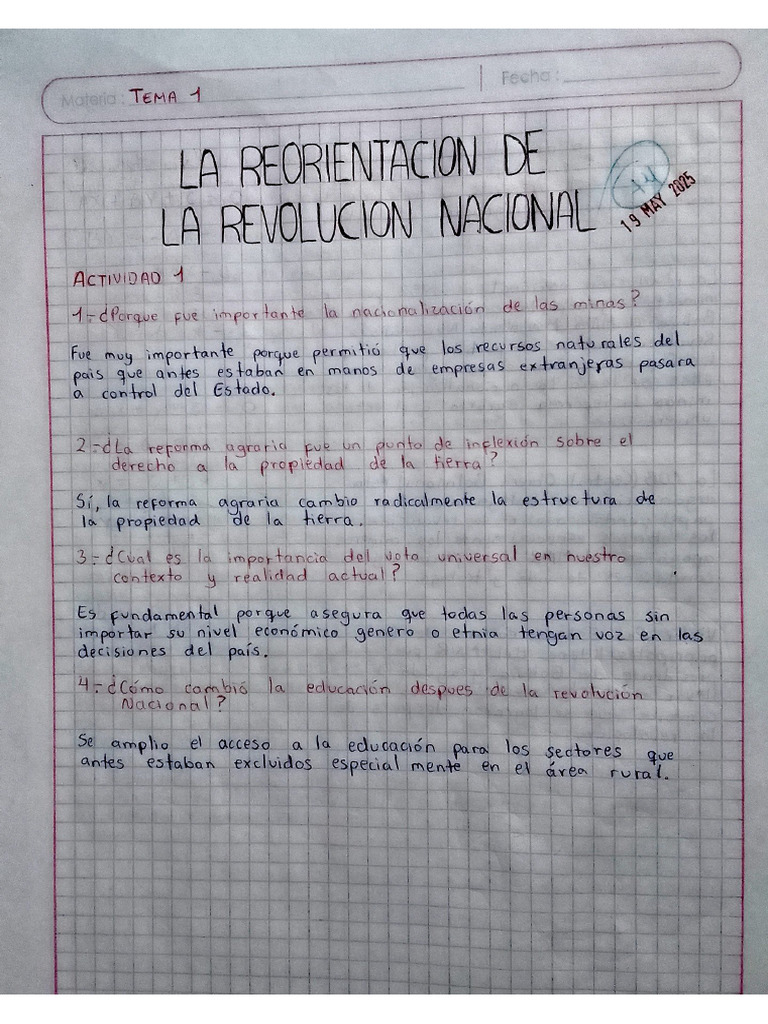 Materia: TEMA 1
Fecha:
LA REORIENTACION DE
LA REVOLUCION NACIONAL
19 MAY 2025
ACTIVIDAD 1
1-¿Porque fue importante la nacionalización de las minas?
Fue muy importante porque permitió que los recursos naturales del
pais que antes estaban en manos de empresas extranjeras pasara
a control del Estado.
2-¿La reforma agraria fue un punto de inflexión sobre el
derecho a la propiedad de la tierra?
Sí, la reforma agraria cambio radicalmente la estructura de
la propiedad de la tierra.
3-¿Cual es la importancia del voto universal en nuestro
contexto y realidad actual?
Es fundamental porque asegura que todas las personas sin
importar su nivel económico genero o etnia tengan voz en las
decisiones del país.
4-¿Cómo cambió la educación despues de la revolución
Nacional?
Se amplio el acceso a la educación para los sectores que
antes estaban excluidos especial mente en el área rural.